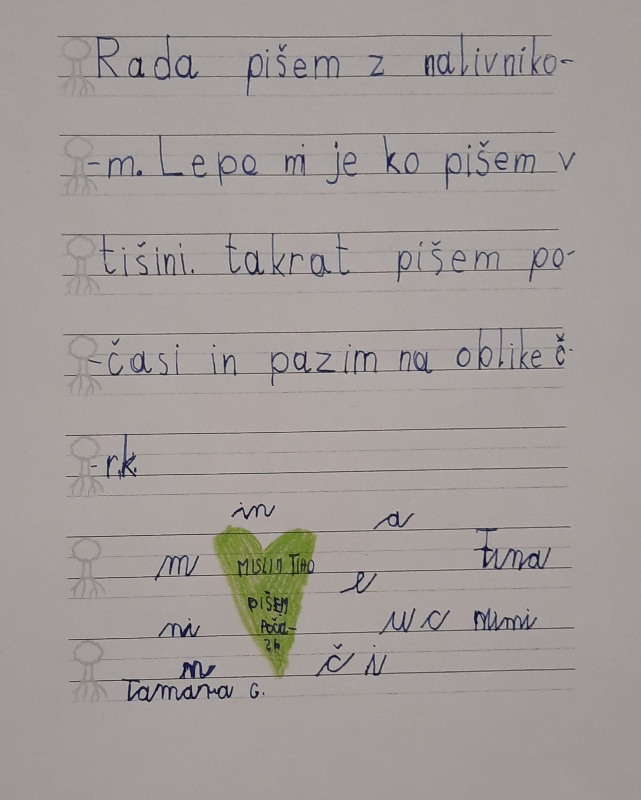 Rada pišem z nalivniko-
-m. Lepo mi je ko pišem v
tišini. takrat pišem po-
-časi in pazim na oblike č-
-rk.
in a
m MISLIM TIHO Tina
e
PIŠEM
ni u c Mimi
n č i
Tamara G.